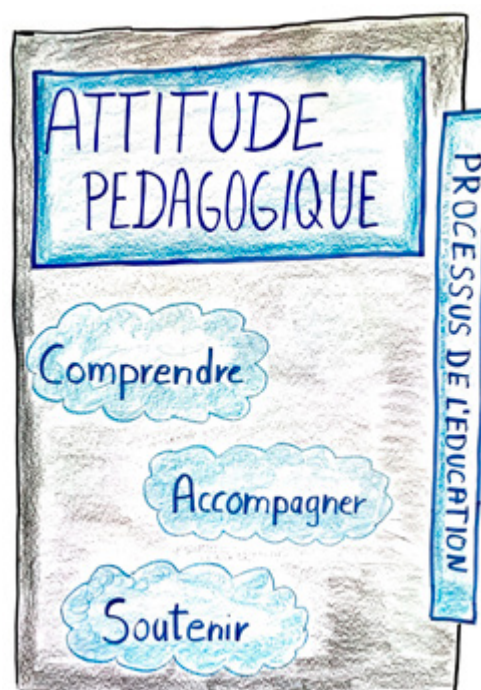 ATTITUDE
PEDAGOGIQUE
Comprendre
Accompagner
Soutenir
PROCESSUS DE L'EDUCATION